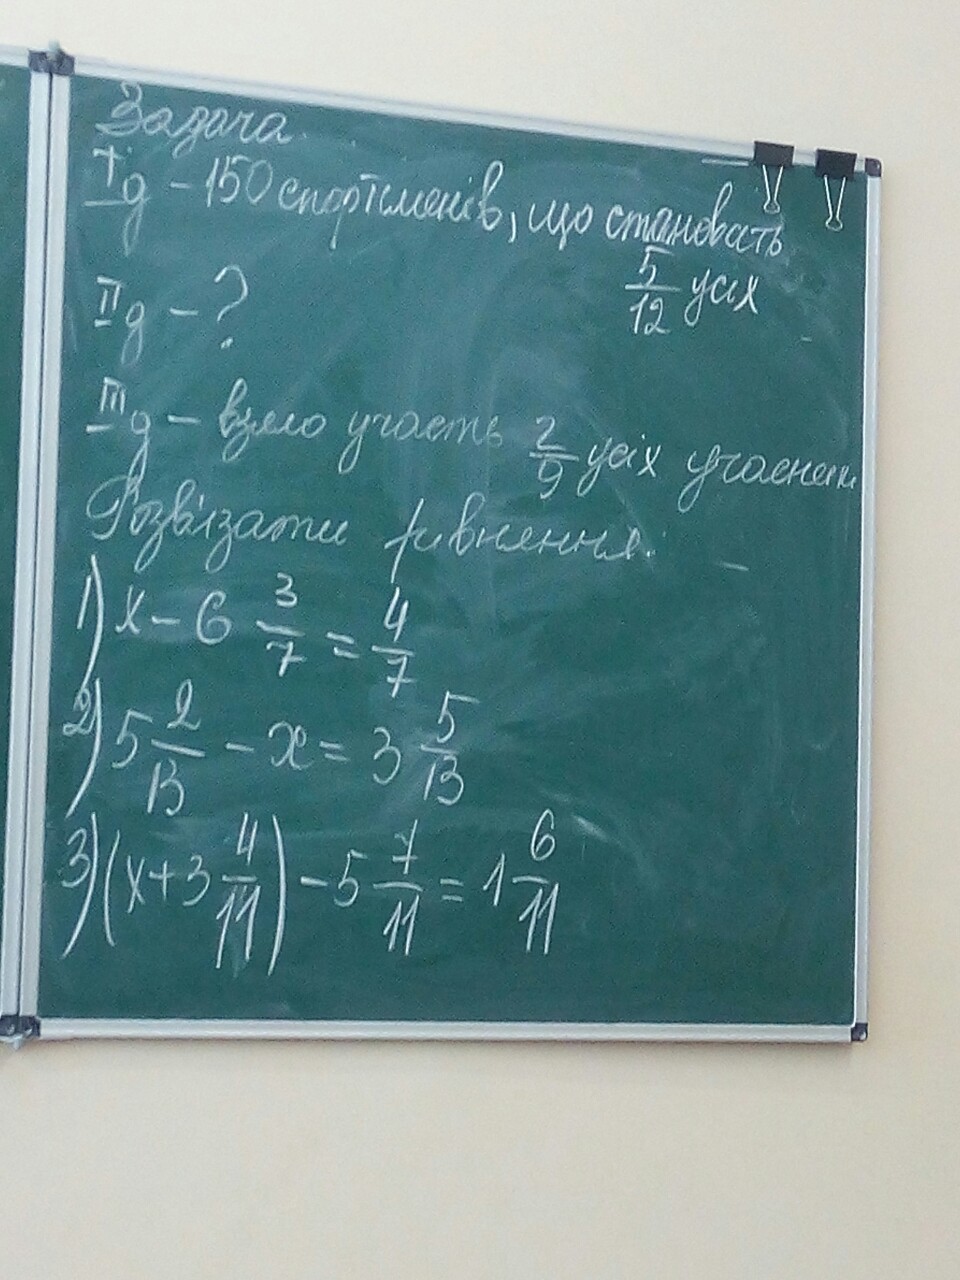 Задача
I д - 150 спортсменів, що становать
5/12 усіх
II д - ?
III д - взяло участь 2/9 усіх учасник
Розв'язати рівняння.
1) x - 6 3/7 = 4/7
2) 5 2/13 - x = 3 5/13
3) (x + 3 4/11) - 5 7/11 = 1 6/11